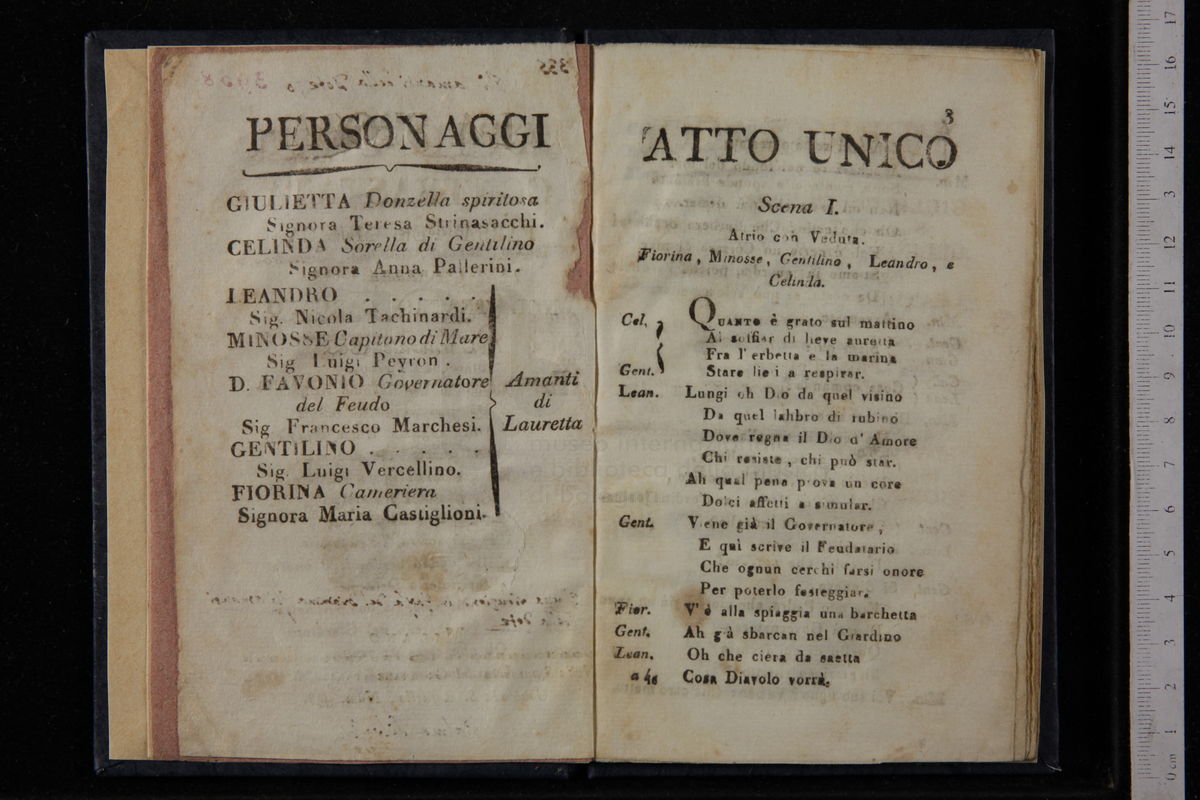 PERSONAGGI
GIULIETTA Donzella spiritosa
Signora Teresa Strinasacchi.
CELINDA Sorella di Gentilino
Signora Anna Pallerini.
LEANDRO . . . . .
Sig. Nicola Tachinardi.
MINOSSE Capitano di Mare
Sig Luigi Peyron .
D. FAVONIO Governatore
del Feudo
Sig. Francesco Marchesi.
GENTILINO . . . . .
Sig. Luigi Vercellino.
FIORINA Cameriera
Signora Maria Castiglioni.
Amanti
di
Lauretta
3
ATTO UNICO
Scena I.
Atrio con Veduta.
Fiorina, Minosse, Gentilino, Leandro, e
Celinda.
Cel. QUANTO è grato sul mattino
Al solfiar di lieve auretta
Fra l'erbetta e la marina
Gent. Stare lieti a respirar.
Lean. Lungi oh Dio da quel visino
Da quel labbro di rubino
Dove regna il Dio d'Amore
Chi resiste, chi può star.
Ah qual pena prova un core
Dolci affetti a simular.
Gent. Viene già il Governatore,
E quì scrive il Feudatario
Che ognun cerchi farsi onore
Per poterlo festeggiar.
Fior. V'è alla spiaggia una barchetta
Gent. Ah già sbarcan nel Giardino
Lean. Oh che ciera da saetta
a 4 Cosa Diavolo vorrà.
0 cm 1 2 3 4 5 6 7 8 9 10 11 12 13 14 15 16 17